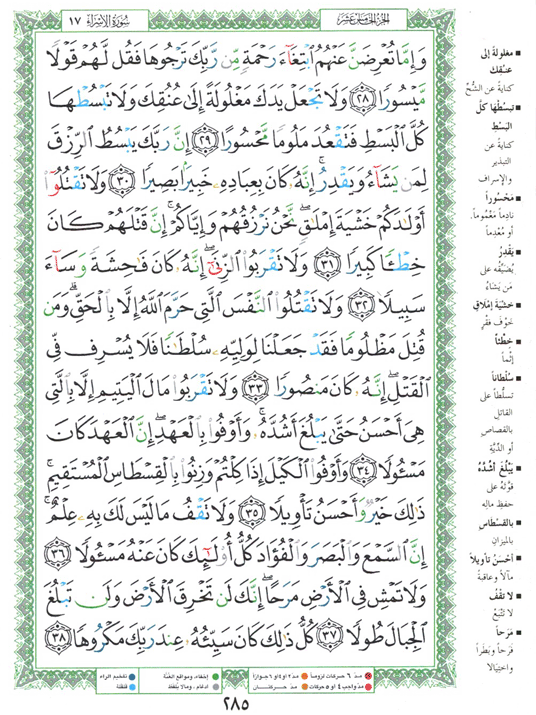 الجزء الخامس عشر
سورة الإسراء ١٧
وَإِمَّا تُعْرِضَنَّ عَنْهُمُ ابْتِغَاءَ رَحْمَةٍ مِّن رَّبِّكَ تَرْجُوهَا فَقُل لَّهُمْ قَوْلًا
مَّيْسُورًا ﴿٢٨﴾ وَلَا تَجْعَلْ يَدَكَ مَغْلُولَةً إِلَىٰ عُنُقِكَ وَلَا تَبْسُطْهَا
كُلَّ الْبَسْطِ فَتَقْعُدَ مَلُومًا مَّحْسُورًا ﴿٢٩﴾ إِنَّ رَبَّكَ يَبْسُطُ الرِّزْقَ
لِمَن يَشَاءُ وَيَقْدِرُ إِنَّهُ كَانَ بِعِبَادِهِ خَبِيرًا بَصِيرًا ﴿٣٠﴾ وَلَا تَقْتُلُوا
أَوْلَادَكُمْ خَشْيَةَ إِمْلَاقٍ نَّحْنُ نَرْزُقُهُمْ وَإِيَّاكُمْ إِنَّ قَتْلَهُمْ كَانَ
خِطْئًا كَبِيرًا ﴿٣١﴾ وَلَا تَقْرَبُوا الزِّنَىٰ إِنَّهُ كَانَ فَاحِشَةً وَسَاءَ
سَبِيلًا ﴿٣٢﴾ وَلَا تَقْتُلُوا النَّفْسَ الَّتِي حَرَّمَ اللَّهُ إِلَّا بِالْحَقِّ وَمَن
قُتِلَ مَظْلُومًا فَقَدْ جَعَلْنَا لِوَلِيِّهِ سُلْطَانًا فَلَا يُسْرِف فِّي
الْقَتْلِ إِنَّهُ كَانَ مَنصُورًا ﴿٣٣﴾ وَلَا تَقْرَبُوا مَالَ الْيَتِيمِ إِلَّا بِالَّتِي
هِيَ أَحْسَنُ حَتَّىٰ يَبْلُغَ أَشُدَّهُ وَأَوْفُوا بِالْعَهْدِ إِنَّ الْعَهْدَ كَانَ
مَسْئُولًا ﴿٣٤﴾ وَأَوْفُوا الْكَيْلَ إِذَا كِلْتُمْ وَزِنُوا بِالْقِسْطَاسِ الْمُسْتَقِيمِ
ذَٰلِكَ خَيْرٌ وَأَحْسَنُ تَأْوِيلًا ﴿٣٥﴾ وَلَا تَقْفُ مَا لَيْسَ لَكَ بِهِ عِلْمٌ
إِنَّ السَّمْعَ وَالْبَصَرَ وَالْفُؤَادَ كُلُّ أُولَٰئِكَ كَانَ عَنْهُ مَسْئُولًا ﴿٣٦﴾
وَلَا تَمْشِ فِي الْأَرْضِ مَرَحًا إِنَّكَ لَن تَخْرِقَ الْأَرْضَ وَلَن تَبْلُغَ
الْجِبَالَ طُولًا ﴿٣٧﴾ كُلُّ ذَٰلِكَ كَانَ سَيِّئُهُ عِندَ رَبِّكَ مَكْرُوهًا ﴿٣٨﴾
■ مغلولة إلى
عنقك
كناية عن الشح
■ تبسطها كل
البسط
كناية عن
التبذير
والإسراف
■ محسورا
نادما مغموما.
أو معدما
■ يقدر
يضيقه على
من يشاء
■ خشية إملاق
خوف فقر
■ خطئا
إثما
■ سلطانا
تسلطا على
القاتل
بالقصاص
أو الدية
■ يبلغ أشده
قوته على
حفظ ماله
■ بالقسطاس
بالميزان
■ أحسن تأويلا
مآلا وعاقبة
■ لا تقف
لا تتبع
■ مرحا
فرحا وبطرا
واختيالا
مد ٦ حركات لزوما مد ٢ أو ٤ أو ٦ جوازا إخفاء، ومواقع الغنة تفخيم الراء
مد واجب ٤ أو ٥ حركات مد حركتان إدغام، وما لا يلفظ قلقلة
٢٨٥